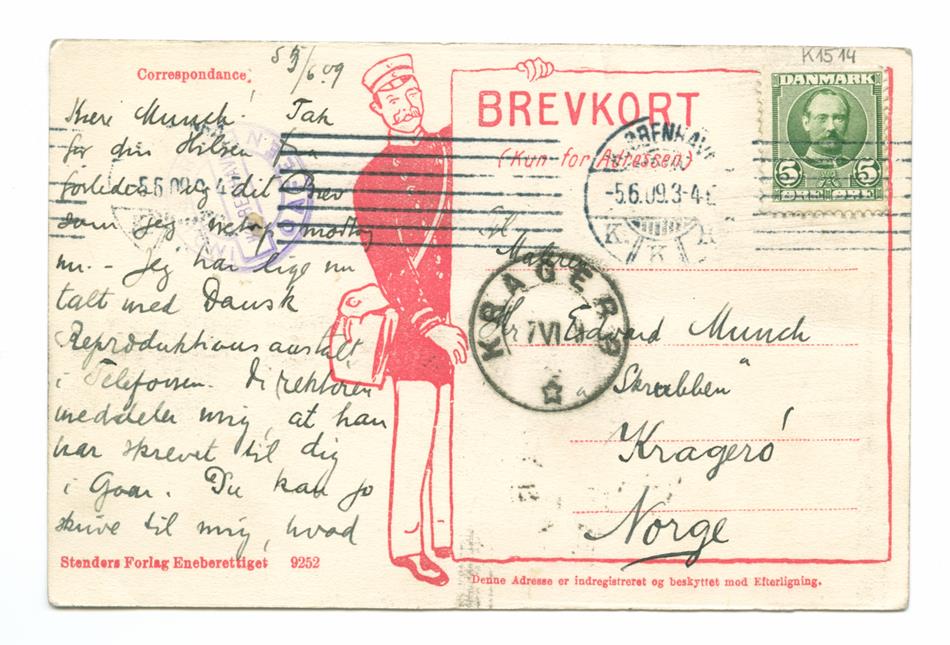 5/6 09
K1514
Correspondance.
Kære Munch! Tak
for din Hilsen fra
forleden og dit Brev
som jeg netop modtog
nu. - Jeg har lige nu
talt med Dansk
Reproduktionsanstalt
i Telefonen. Direktøren
meddeler mig, at han
har skrevet til dig
i Gaar. Du kan jo
skrive til mig, hvad
Stenders Forlag Eneberettiget 9252
BREVKORT
(Kun for Adressen)
DANMARK
5 5
ØRE ØRE
KØBENHAVN
-5.6.09.3-4
K. K
5.6.09. 4
KRAGERØ
7 VI
Hr. Maleren
Hr. Edvard Munch
"Skrubben"
Kragerø
Norge
Denne Adresse er indregistreret og beskyttet mod Efterligning.